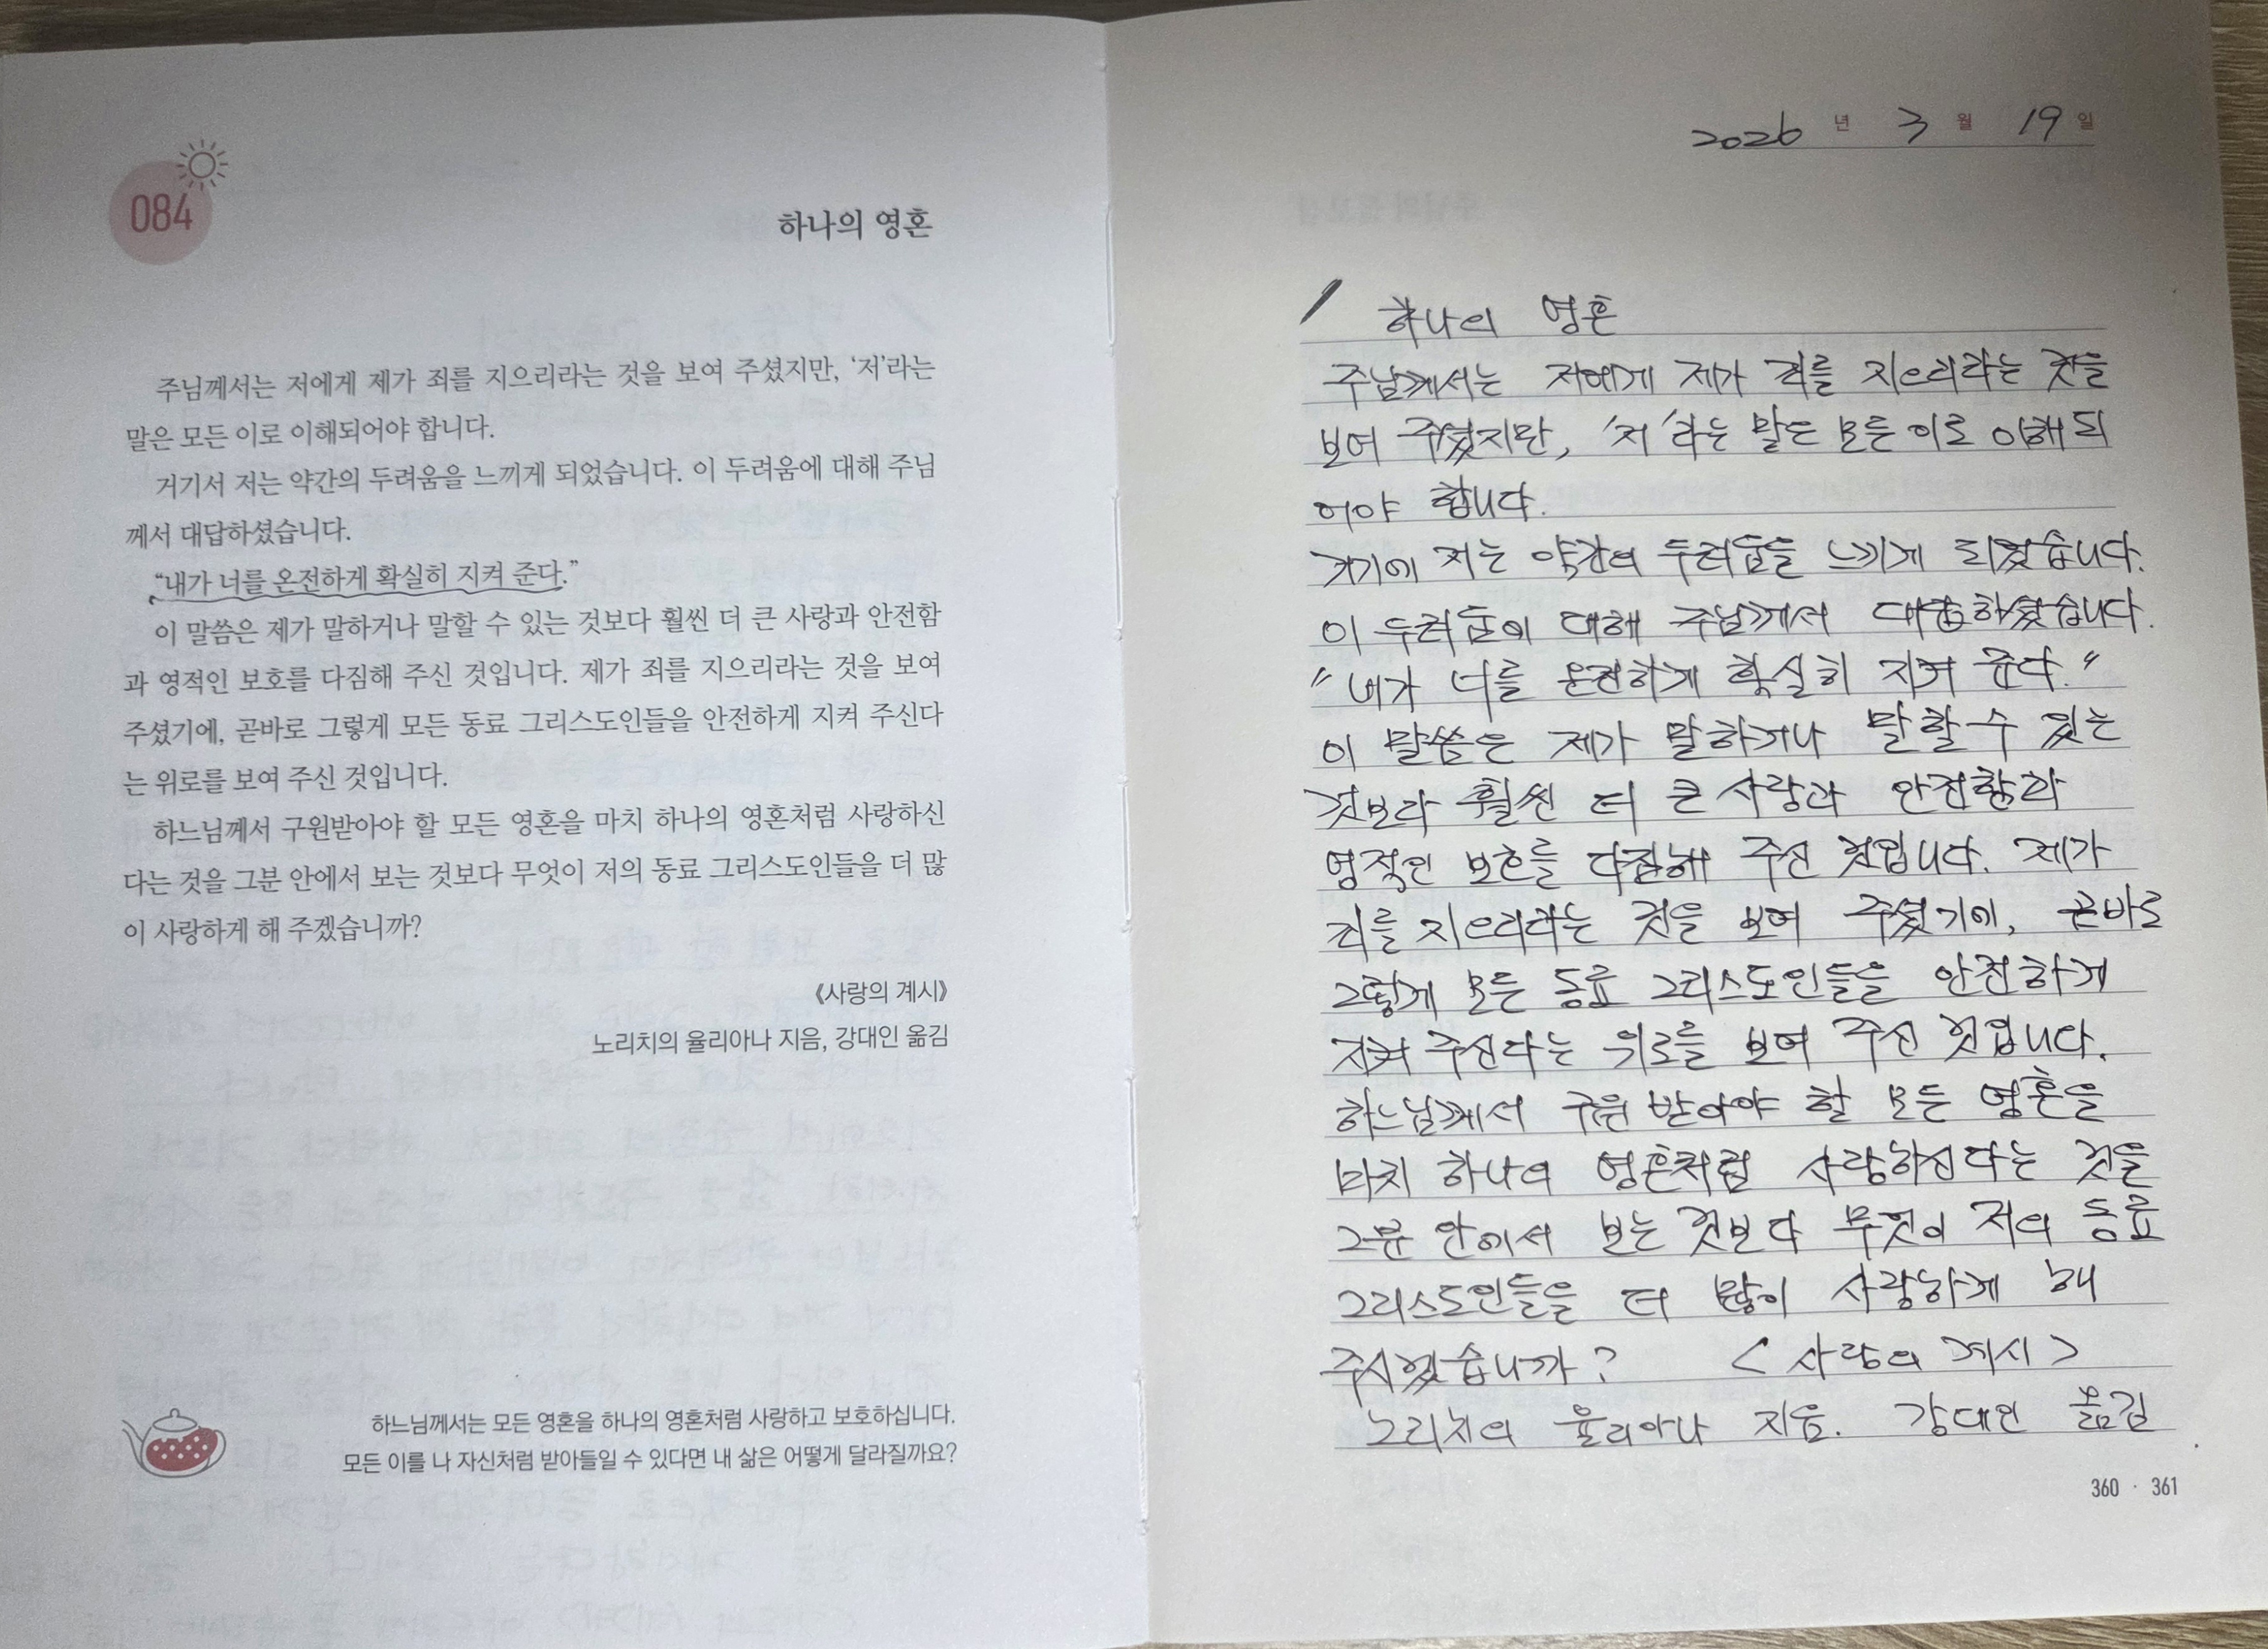 084
하나의 영혼
주님께서는 저에게 제가 죄를 지으리라는 것을 보여 주셨지만, ‘저’라는
말은 모든 이로 이해되어야 합니다.
거기서 저는 약간의 두려움을 느끼게 되었습니다. 이 두려움에 대해 주님
께서 대답하셨습니다.
“내가 너를 온전하게 확실히 지켜 준다.”
이 말씀은 제가 말하거나 말할 수 있는 것보다 훨씬 더 큰 사랑과 안전함
과 영적인 보호를 다짐해 주신 것입니다. 제가 죄를 지으리라는 것을 보여
주셨기에, 곧바로 그렇게 모든 동료 그리스도인들을 안전하게 지켜 주신다
는 위로를 보여 주신 것입니다.
하느님께서 구원받아야 할 모든 영혼을 마치 하나의 영혼처럼 사랑하신
다는 것을 그분 안에서 보는 것보다 무엇이 저의 동료 그리스도인들을 더 많
이 사랑하게 해 주겠습니까?
《사랑의 계시》
노리치의 율리아나 지음, 강대인 옮김
하느님께서는 모든 영혼을 하나의 영혼처럼 사랑하고 보호하십니다.
모든 이를 나 자신처럼 받아들일 수 있다면 내 삶은 어떻게 달라질까요?
2026 년 3 월 19 일
하나의 영혼
주님께서는 저에게 제가 죄를 지으리라는 것을
보여 주셨지만, ‘저’라는 말은 모든 이로 이해되
어야 합니다.
거기에 저는 약간의 두려움을 느끼게 되었습니다.
이 두려움에 대해 주님께서 대답하셨습니다.
“내가 너를 온전하게 확실히 지켜 준다.”
이 말씀은 제가 말하거나 말할 수 있는
것보다 훨씬 더 큰 사랑과 안전함과
영적인 보호를 다짐해 주신 것입니다. 제가
죄를 지으리라는 것을 보여 주셨기에, 곧바로
그렇게 모든 동료 그리스도인들을 안전하게
지켜 주신다는 위로를 보여 주신 것입니다.
하느님께서 구원 받아야 할 모든 영혼을
마치 하나의 영혼처럼 사랑하신다는 것을
그분 안에서 보는 것보다 무엇이 저의 동료
그리스도인들을 더 많이 사랑하게 해
주시겠습니까? <사랑의 계시>
노리치의 율리아나 지음. 강대인 옮김
360 · 361